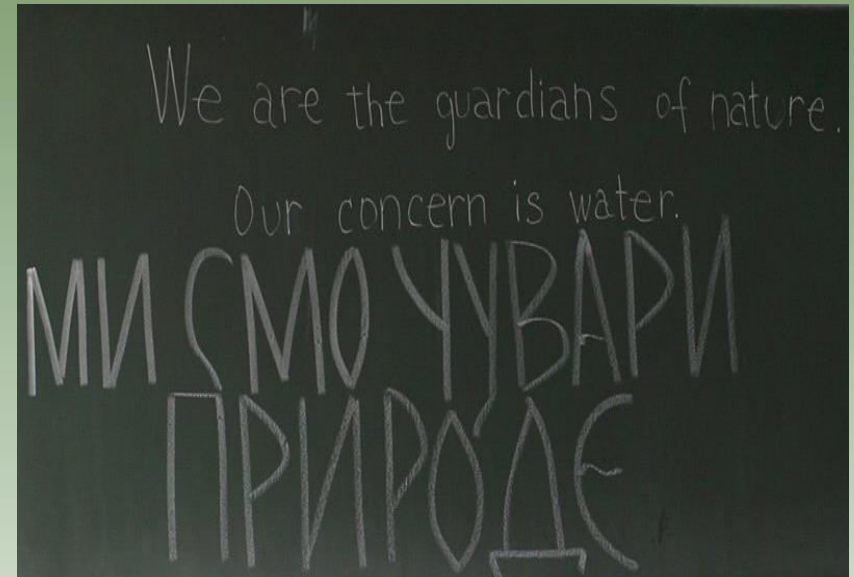 We are the guardians of nature.
Our concern is water.
МИ СМО ЧУВАРИ
ПРИРОДЕ